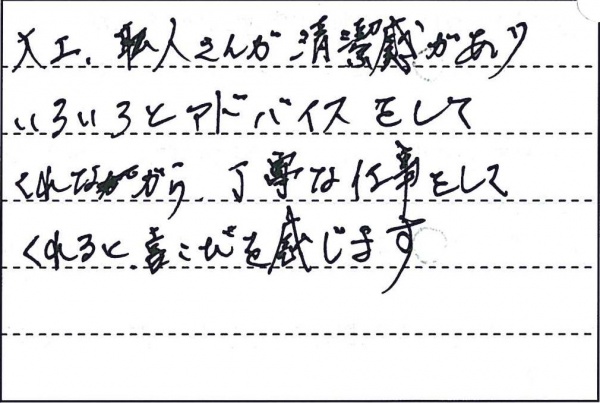 大工、職人さんが清潔感があり
いろいろとアドバイスをして
くれながら、丁寧な仕事をして
くれると、喜こびを感じます